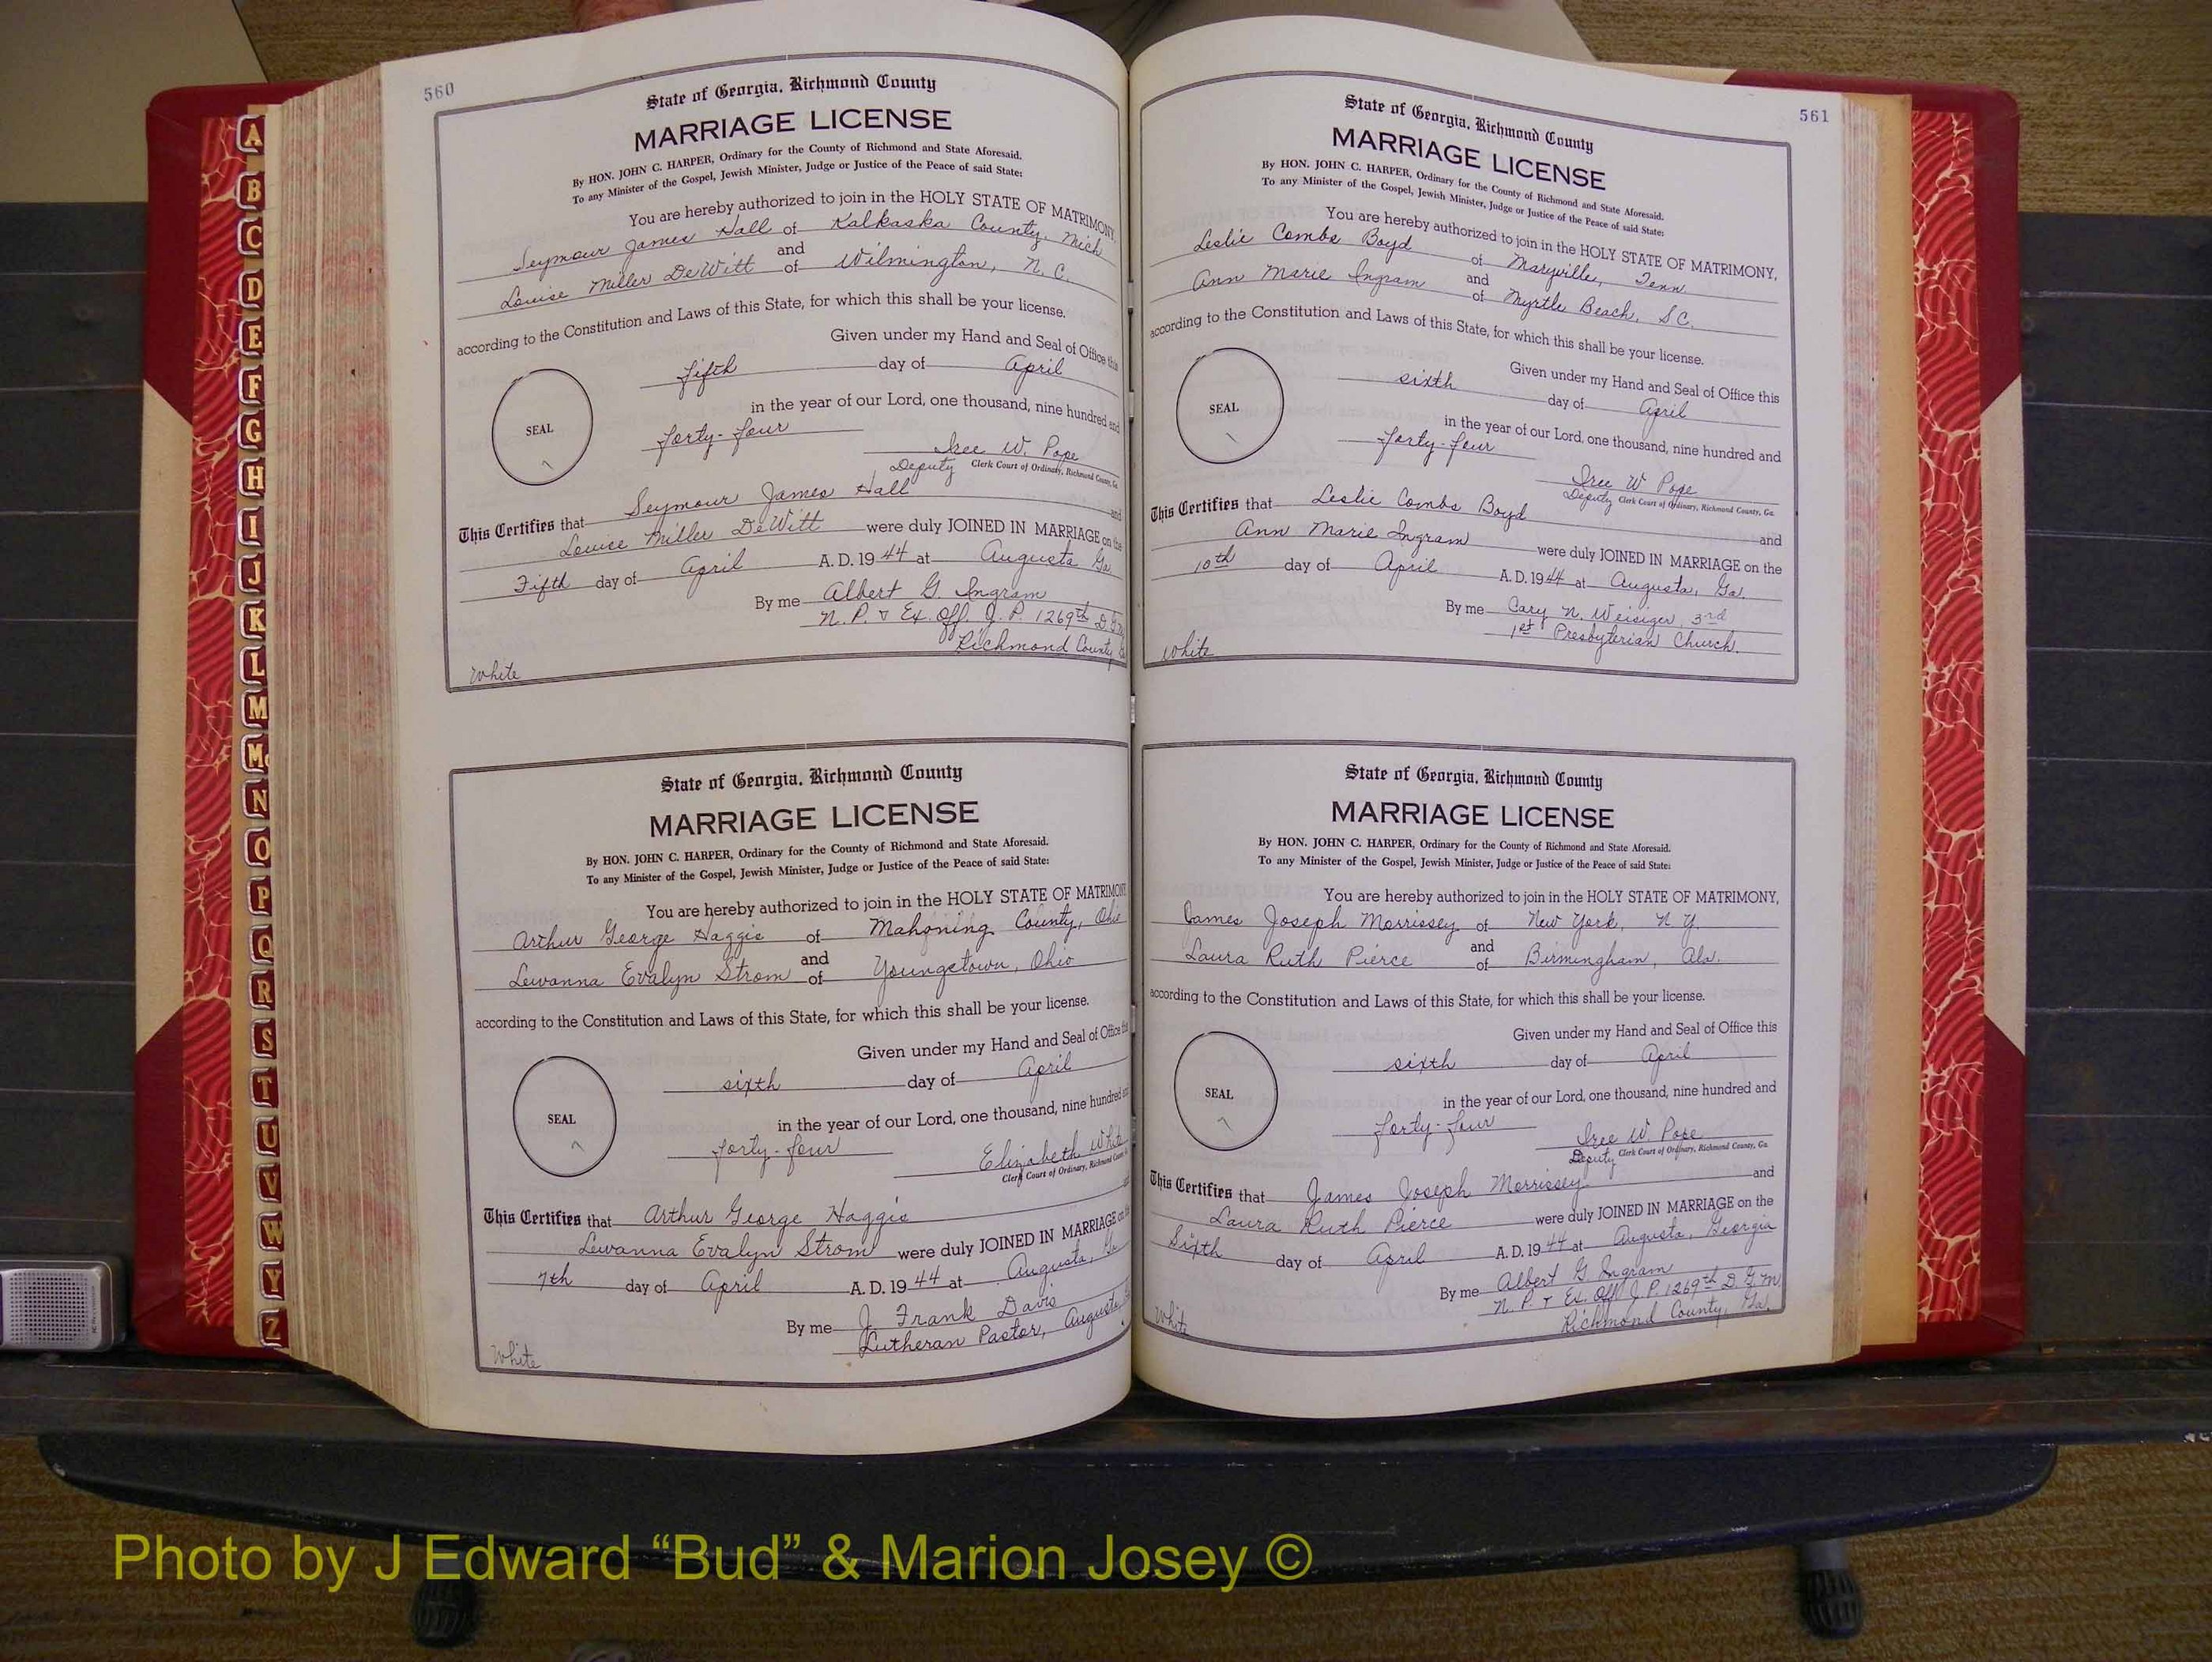 560
State of Georgia, Richmond County
MARRIAGE LICENSE
By HON. JOHN C. HARPER, Ordinary for the County of Richmond and State Aforesaid.
To any Minister of the Gospel, Jewish Minister, Judge or Justice of the Peace of said State:
You are hereby authorized to join in the HOLY STATE OF MATRIMONY,
Seymour James Hall of Kalkaska County, Mich
and
Louise Miller DeWitt of Wilmington, N. C.
according to the Constitution and Laws of this State, for which this shall be your license.
Given under my Hand and Seal of Office this
fifth day of April
in the year of our Lord, one thousand, nine hundred and
SEAL
forty-four
Iree W. Pope
Deputy Clerk Court of Ordinary, Richmond County, Ga.
This Certifies that Seymour James Hall and
Louise Miller DeWitt were duly JOINED IN MARRIAGE on the
Fifth day of April A. D. 1944 at Augusta Ga
By me Albert G. Ingram
N. P. & Ex. Off. J. P. 1269th D. G. M.
Richmond County
White
State of Georgia, Richmond County
MARRIAGE LICENSE
By HON. JOHN C. HARPER, Ordinary for the County of Richmond and State Aforesaid.
To any Minister of the Gospel, Jewish Minister, Judge or Justice of the Peace of said State:
You are hereby authorized to join in the HOLY STATE OF MATRIMONY
Arthur George Haggis of Mahoning County, Ohio
and
Lewanna Evalyn Strom of Youngstown, Ohio
according to the Constitution and Laws of this State, for which this shall be your license.
Given under my Hand and Seal of Office this
sixth day of April
in the year of our Lord, one thousand, nine hundred and
SEAL
forty-four
Elizabeth White
Clerk Court of Ordinary, Richmond County
This Certifies that Arthur George Haggis and
Lewanna Evalyn Strom were duly JOINED IN MARRIAGE on the
7th day of April A. D. 1944 at Augusta, Ga
By me J. Frank Davis
Lutheran Pastor, Augusta,
White
561
State of Georgia, Richmond County
MARRIAGE LICENSE
By HON. JOHN C. HARPER, Ordinary for the County of Richmond and State Aforesaid.
To any Minister of the Gospel, Jewish Minister, Judge or Justice of the Peace of said State:
You are hereby authorized to join in the HOLY STATE OF MATRIMONY,
Leslie Combs Boyd of Maryville, Tenn
and
Ann Marie Ingram of Myrtle Beach, S C.
according to the Constitution and Laws of this State, for which this shall be your license.
Given under my Hand and Seal of Office this
sixth day of April
in the year of our Lord, one thousand, nine hundred and
SEAL
forty-four
Iree W Pope
Deputy Clerk Court of Ordinary, Richmond County, Ga.
This Certifies that Leslie Combs Boyd and
Ann Marie Ingram were duly JOINED IN MARRIAGE on the
10th day of April A. D. 1944 at Augusta, Ga.
By me Cary N. Weisiger, 3rd
1st Presbyterian Church.
White
State of Georgia, Richmond County
MARRIAGE LICENSE
By HON. JOHN C. HARPER, Ordinary for the County of Richmond and State Aforesaid.
To any Minister of the Gospel, Jewish Minister, Judge or Justice of the Peace of said State:
You are hereby authorized to join in the HOLY STATE OF MATRIMONY,
James Joseph Morrissey of New York, N Y.
and
Laura Ruth Pierce of Birmingham, Ala.
according to the Constitution and Laws of this State, for which this shall be your license.
Given under my Hand and Seal of Office this
sixth day of April
in the year of our Lord, one thousand, nine hundred and
SEAL
forty-four
Iree W. Pope
Deputy Clerk Court of Ordinary, Richmond County, Ga
This Certifies that James Joseph Morrissey and
Laura Ruth Pierce were duly JOINED IN MARRIAGE on the
Sixth day of April A. D. 1944 at Augusta, Georgia
By me Albert G Ingram
N. P. & Ex. Off J. P. 1269th D. G. M.
Richmond County, Ga.
White
A
B
C
D
E
F
G
H
I
J
K
L
M
Mc
N
O
P
Q
R
S
T
U
V
W
Y
Z
Photo by J Edward “Bud” & Marion Josey ©